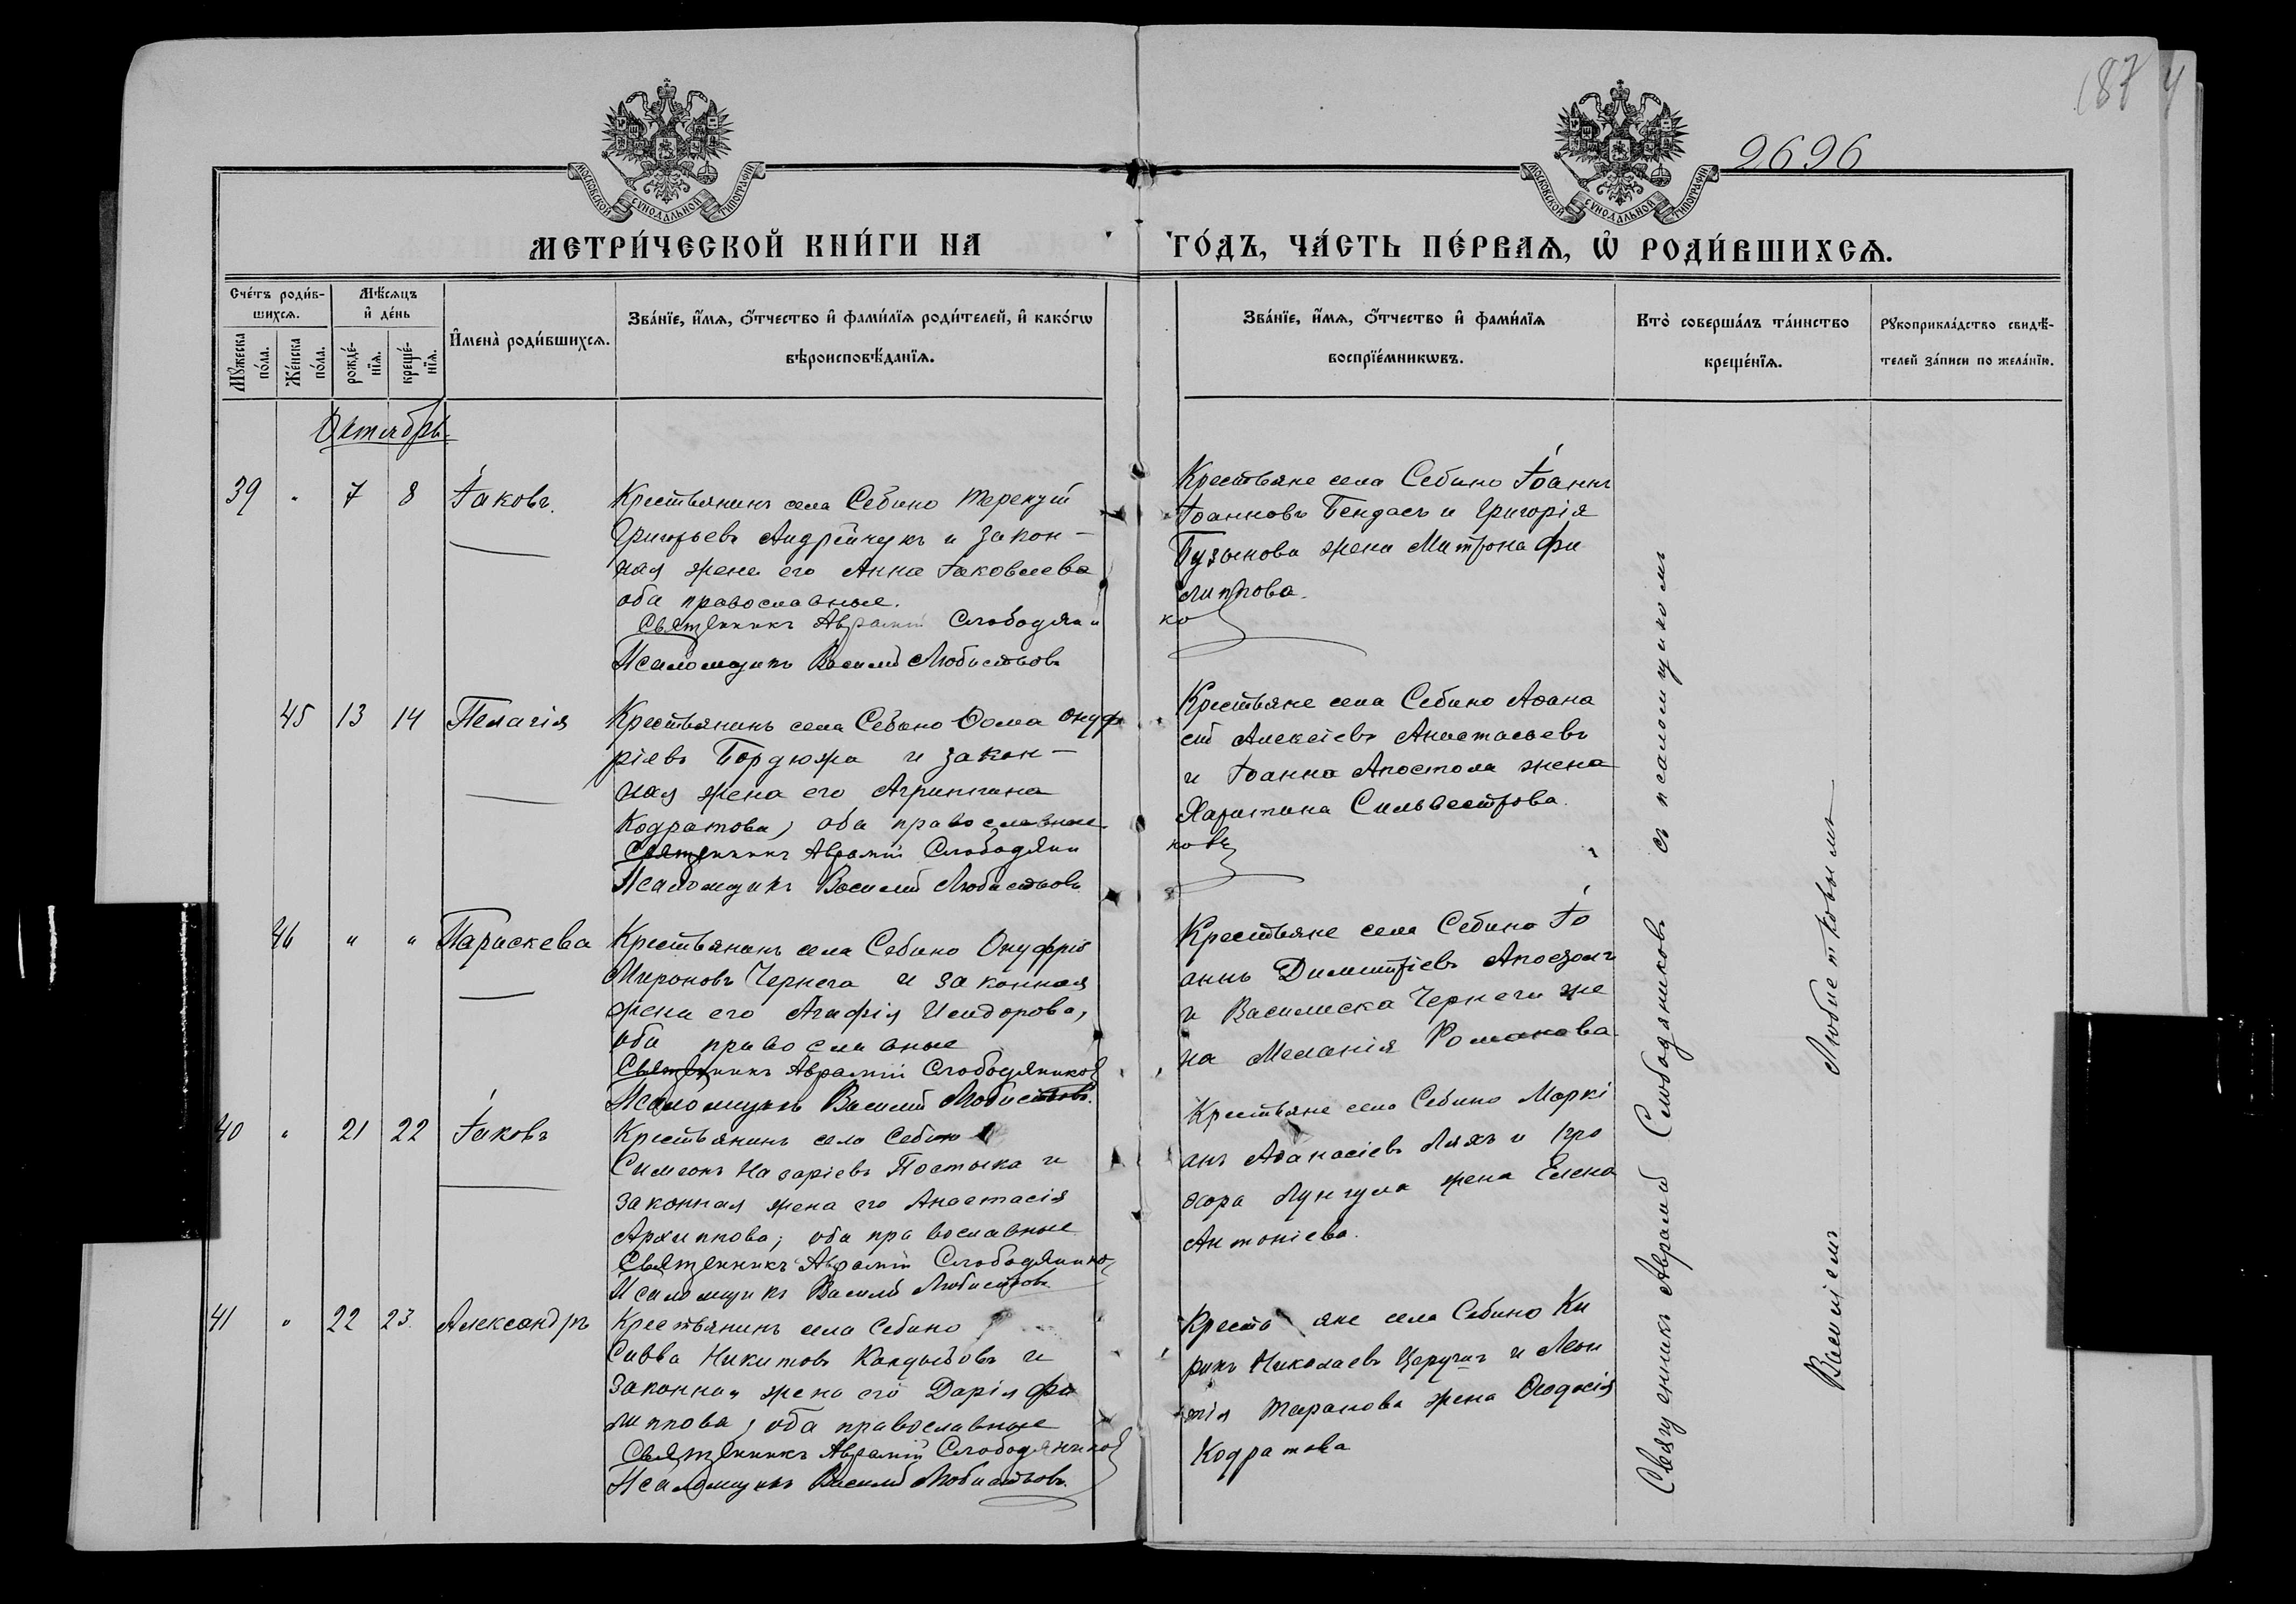 187
4
2696
МОСКОВСКОЙ СѴНОДАЛЬНОЙ ТИПОГРАФІИ
МОСКОВСКОЙ СѴНОДАЛЬНОЙ ТИПОГРАФІИ
МЕТРИ́ЧЕСКОЙ КНИ́ГИ НА
ГО́ДЪ, ЧА́СТЬ ПЕ́РВАѦ, Ѡ҆ РОДИ́ВШИХСѦ.
Сче́тъ роди́в-
шихсѧ.
Мꙋжеска по́ла.
Же́нска по́ла.
Мѣ́сѧцъ
и҆ де́нь
рожде́-
нїѧ.
креще́-
нїѧ.
И҆мена̀ роди́вшихсѧ.
Зва́нїе, и҆́мѧ, ѻ҆́тчество и҆ фами́лїѧ роди́телей, и҆ како́гѡ
вѣроисповѣ́данїѧ.
Зва́нїе, и҆́мѧ, ѻ҆́тчество и҆ фами́лїѧ
воспрїе́мникѡвъ.
Кто̀ соверша́лъ та́инство
креще́нїѧ.
Рꙋкоприкла́дство свидѣ́-
телей за́писи по жела́нїю.
Октябрь
39 " 7 8 Іаковъ.
Крестьянинъ села Себино
Григорьевъ Андрейчукъ и закон-
ная жена его Анна Іаковлева
оба православные.
Священникъ Аврамій Слободяни
ко
Псаломщикъ Василій Любистковъ
Крестьяне села Себино Іоаннъ
Іоанновъ Бендасъ и Григорія
Бузынова жена Матрона Фи
липпова.
45 13 14 Пелагія
Крестьянинъ села Себино Ѳома Онуф
ріевъ Бордюжа и закон-
ная жена его Агриппина
Кодратова, оба православные.
Священникъ Аврамій Слободяни
ковъ
Псаломщикъ Василій Любистковъ
Крестьяне села Себино Аѳана
сій Алексіевъ Анастасьевъ
и Іоанна Апостола жена
Харитина Сильвестрова.
46 " " Параскева
Крестьянинъ села Себино Онуфрій
Мироновъ Чернега и законная
жена его Агафія Исидорова,
оба православные
Священникъ Аврамій Слободяниковъ
Псаломщикъ Василій Любистковъ.
Крестьяне села Себино Іо
аннъ Димитріевъ Апостолъ
и Василиска Чернеги же
на Меланія Романова
40 " 21 22 Іаковъ
Крестьянинъ села Себино
Симеонъ Назаріевъ Постыка и
законная жена его Анастасія
Архиппова; оба православные
Священникъ Аврамій Слободянико
Псаломщикъ Василій Любистковъ
Крестьяне села Себино Маркі
анъ Аѳанасіевъ Ляхъ и Про
хора Лунгула жена Елена
Антоніева.
41 " 22 23 Александръ
Крестьянинъ села Себино
Савва Никитовъ Кандыбовъ и
законная жена его Дарія Фи
липпова; оба православные
Священникъ Аврамій Слободяниковъ
Псаломщикъ Василій Любистковъ.
Крестьяне села Себино Ки
рикъ Николаевъ и Леон
тія Таранова жена Ѳеодосія
Кодратова
Священникъ Аврамій Слободяниковъ съ псаломщикомъ
Василіемъ Любистковымъ